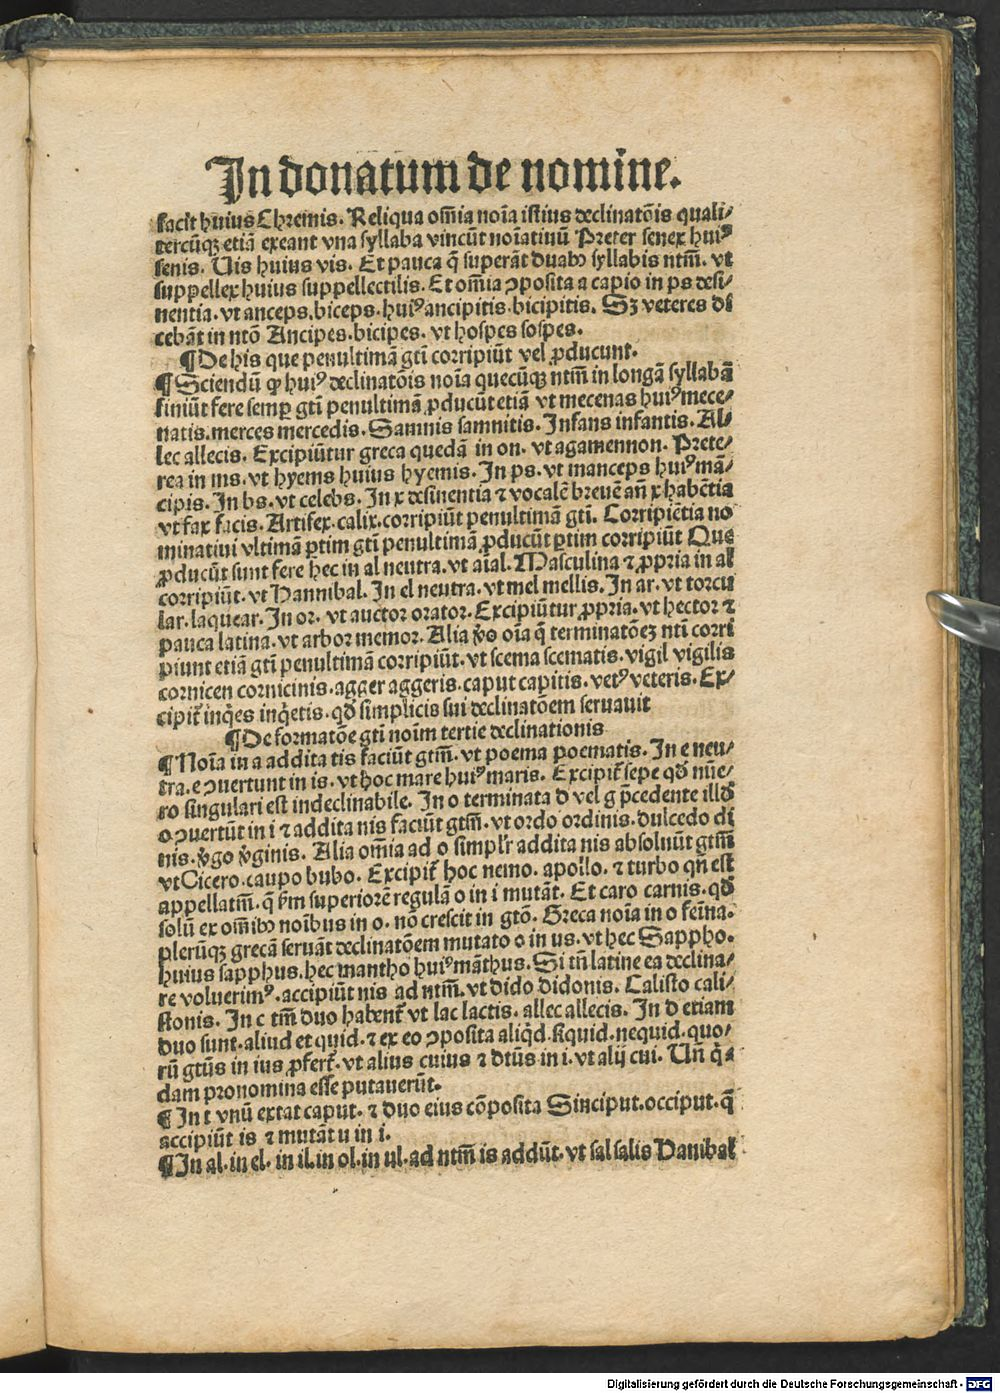 In donatum de nomine.
facit huius Chremis. Reliqua om̄ia noīa istius declinatōis quali/
tercūqꝫ etiā exeant vna syllaba vincūt noīatiuū Preter senex huiꝰ
senis. Uis huius vis. Et pauca q̄ superāt duabꝰ syllabis ntm̄. vt
suppellex huius suppellectilis. Et om̄ia ꝯposita a capio in ps desi/
nentia. vt anceps. biceps. huiꝰ ancipitis. bicipitis. Sꝫ veteres di
cebāt in ntō Ancipes. bicipes. vt hospes sospes.
¶De his que penultimā gtī corripiūt vel ꝓducunt.
¶Sciendū ꝙ huiꝰ declinatōis noīa quecūqꝫ ntm̄ in longā syllabā
finiūt fere semꝑ gtī penultimā ꝓducūt etiā vt mecenas huiꝰ mece/
natis. merces mercedis. Samnis samnitis. Infans infantis. Al/
lec allecis. Excipiūtur greca quedā in on. vt agamennon. Prete/
rea in ms. vt hyems huius hyemis. In ps. vt manceps huiꝰ mā/
cipis. In bs. vt celebs. In x desinentia ⁊ vocalē breuē añ x habētia
vt fax facis. Artifex. calix. corripiūt penultimā gtī. Corripiētia no
minatiui vltimā ꝑtim gtī penultimā ꝓducūt ꝑtim corripiūt Que
ꝓducūt sunt fere hec in al neutra. vt aīal. Masculina ⁊ ꝓpria in al
corripiūt. vt Hannibal. In el neutra. vt mel mellis. In ar. vt torcu
lar. laquear. In or. vt auctor orator. Excipiūtur ꝓpria. vt hector ⁊
pauca latina. vt arbor memor. Alia v̊o oīa q̄ terminatōeꝫ ntī corri
piunt etiā gtī penultimā corripiūt. vt scema scematis. vigil vigilis
cornicen cornicinis. agger aggeris. caput capitis. vetꝰ veteris. Ex/
cipit̄ inq̇es inq̇etis. qđ simplicis sui declinatōem seruauit
¶De formatōe gtī noīm tertie declinationis
¶Noīa in a addita tis faciūt gtm̄. vt poema poematis. In e neu/
tra. e ꝯuertunt in is. vt hoc mare huiꝰ maris. Excipit̄ sepe qđ nūe/
ro singulari est indeclinabile. In o terminata d vel g p̄cedente illđ
o ꝯuertūt in i ⁊ addita nis faciūt gtm̄. vt ordo ordinis. dulcedo di
nis. v̊go v̊ginis. Alia om̄ia ad o simplr̄ addita nis absoluūt gtm̄
vt Cicero. caupo bubo. Excipit̄ hoc nemo. apollo. ⁊ turbo qn̄ est
appellatm̄. q̄ ẜm superiorē regulā o in i mutāt. Et caro carnis. qđ
solū ex om̄ibꝰ noībus in o. nō crescit in gtō. Greca noīa in o fēina.
plerūqꝫ grecā seruāt declinatōem mutato o in us. vt hec Sappho.
huius sapphus. hec mantho huiꝰ māthus. Si tn̄ latine ea declina/
re voluerimꝰ. accipiūt nis ad ntm̄. vt dido didonis. Calisto cali/
stonis. In c tm̄ duo habent̄ vt lac lactis. allec allecis. In d etiam
duo sunt. aliud et quid. ⁊ ex eo ꝯposita aliq̇d. siquid. nequid. quo/
rū gtūs in ius ꝓfert̄. vt alius cuius ⁊ dtūs in i. vt alij cui. Un̄ q̇/
dam pronomina esse putauerūt.
¶In t vnū extat caput. ⁊ duo eius cōposita Sinciput. occiput. q̄
accipiūt is ⁊ mutāt u in i.
¶In al. in el. in il. in ol. in ul. ad ntm̄ is addūt. vt sal salis Hanibal
Digitalisierung gefördert durch die Deutsche Forschungsgemeinschaft - DFG